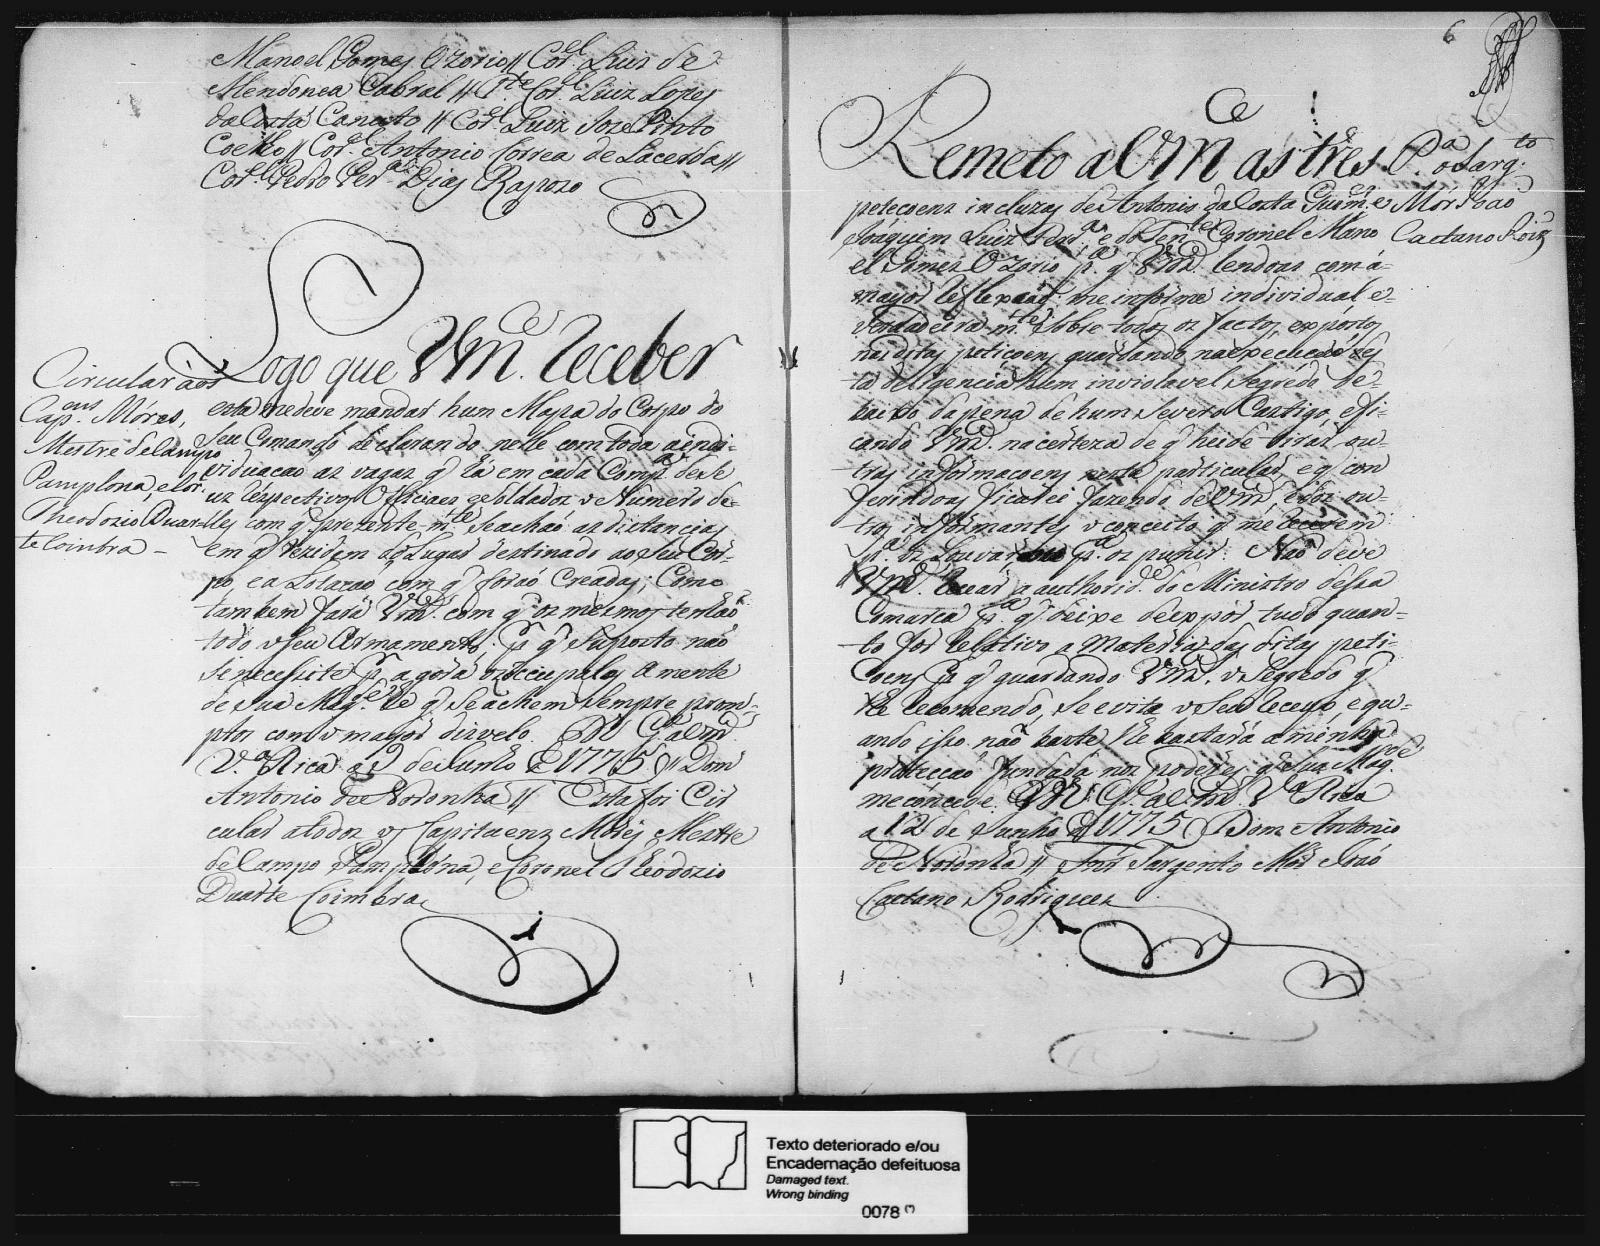 Manoel Gomes Ozorio // Cor.el Luis de
Mendonca Cabral // Th.e Cor.el Luiz Lopes
da Costa // Cor.el Luiz Joze Pinto
Coelho // Cor.el Antonio Correa de Lacerda //
Cor.el Pedro Dias Rapozo
Circular aos
Cap.ens Móres,
Mestre de Campo
Pamplona, e Cor.el
Theodozio Duar-
te Coimbra -
Logo que Vm.ce receber
esta me deve mandar hum Mapa do Corpo do
Seu Comando declarando nelle com toda a indi-
viduacao as vagas q' ha em cada Comp.a de Se
us respectivos Officiaes e Soldados o Numero de-
lles com q' prezente-m.te se achaõ as distancias
em q' rezidem do Lugar destinado ao Seu Cor-
po e a Lotacaõ com q' foraõ Creadas; Como
tambem fará Vm.ce com q' os mesmos tenhaõ
todo o seu Armamento, p.r q' Suposto naõ
Se necessite p.r agora
de Sua Mag.e he q' Se achem Sempre prom-
ptos com o mayor disvelo. D.s G.e a Vm.ce
V.a Rica a 9 de Junho de 1775 // Dom
Antonio de Noronha // Esta foi Cir
cular a todos os Capitaens Móres, Mestre
de Campo Pamplona, e Coronel Theodozio
Duarte Coimbra
6
P.a o Sarg.to
Mór Joaõ
Caetano Roiz
Remeto a Vm.ce as tres
peticoens incluzas de Antonio da Costa Guim.es
Joaquim Luiz e do Ten.te Coronel Mano
el Gomes Ozorio p.a q' Vm.ce lendoas com a
mayor reflexaõ me informe individual e
verdadeira-m.te Sobre todos os factos expostos
nas ditas peticoens guardando na expediçaõ des
ta deligencia hum inviolavel Segredo de-
baixo da pena de hum Severo Castigo, e fi-
cando Vm.ce na certeza de q' heide tirar ou-
tras informacoens nesta particular e q' con
ferindoas ficarei fazendo de Vm.ce, e dos ou-
tros informantes o conceito q' me merecerem
p.a os Louvar, p.a os punir. Naõ deve
Vm.ce a authorid.e do Ministro dessa
Comarca p.a q' deixe de expor tudo quan-
to for relativo a Materia das ditas peti-
coens p.r q' guardando Vm.ce o Segredo q'
lhe recomendo, Se evita o Seu receyo, e qu-
ando isso naõ baste lhe bastará a minha
proteccaõ fundada nos poderes q' Sua Mag.de
me concede. D.s G.e a Vm.ce V.a Rica
a 12 de Junho de 1775 // Dom Antonio
de Noronha // Snr Sargento Mór Joaõ
Caetano Rodrigues
Texto deteriorado e/ou
Encadernação defeituosa
Damaged text.
Wrong binding
0078 (*)